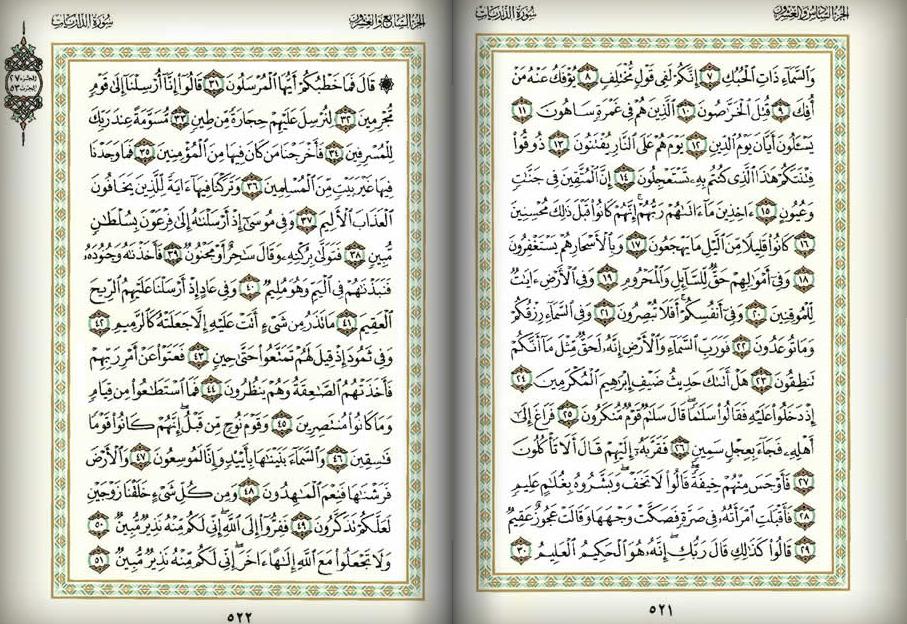 الجزء السادس والعشرون سورة الذاريات
وَالسَّمَاءِ ذَاتِ الْحُبُكِ ٧ إِنَّكُمْ لَفِي قَوْلٍ مُّخْتَلِفٍ ٨ يُؤْفَكُ عَنْهُ مَنْ
أُفِكَ ٩ قُتِلَ الْخَرَّاصُونَ ١٠ الَّذِينَ هُمْ فِي غَمْرَةٍ سَاهُونَ ١١
يَسْـَٔلُونَ أَيَّانَ يَوْمُ الدِّينِ ١٢ يَوْمَ هُمْ عَلَى النَّارِ يُفْتَنُونَ ١٣ ذُوقُوا
فِتْنَتَكُمْ هَٰذَا الَّذِي كُنتُم بِهِ تَسْتَعْجِلُونَ ١٤ إِنَّ الْمُتَّقِينَ فِي جَنَّاتٍ
وَعُيُونٍ ١٥ ءَاخِذِينَ مَا ءَاتَىٰهُمْ رَبُّهُمْ إِنَّهُمْ كَانُوا قَبْلَ ذَٰلِكَ مُحْسِنِينَ
١٦ كَانُوا قَلِيلًا مِّنَ الَّيْلِ مَا يَهْجَعُونَ ١٧ وَبِالْأَسْحَارِ هُمْ يَسْتَغْفِرُونَ
١٨ وَفِي أَمْوَٰلِهِمْ حَقٌّ لِّلسَّائِلِ وَالْمَحْرُومِ ١٩ وَفِي الْأَرْضِ ءَايَٰتٌ
لِّلْمُوقِنِينَ ٢٠ وَفِي أَنفُسِكُمْ أَفَلَا تُبْصِرُونَ ٢١ وَفِي السَّمَاءِ رِزْقُكُمْ
وَمَا تُوعَدُونَ ٢٢ فَوَرَبِّ السَّمَاءِ وَالْأَرْضِ إِنَّهُ لَحَقٌّ مِّثْلَ مَا أَنَّكُمْ
تَنطِقُونَ ٢٣ هَلْ أَتَىٰكَ حَدِيثُ ضَيْفِ إِبْرَٰهِيمَ الْمُكْرَمِينَ ٢٤
إِذْ دَخَلُوا عَلَيْهِ فَقَالُوا سَلَٰمًا قَالَ سَلَٰمٌ قَوْمٌ مُّنكَرُونَ ٢٥ فَرَاغَ إِلَىٰ
أَهْلِهِ فَجَاءَ بِعِجْلٍ سَمِينٍ ٢٦ فَقَرَّبَهُ إِلَيْهِمْ قَالَ أَلَا تَأْكُلُونَ
٢٧ فَأَوْجَسَ مِنْهُمْ خِيفَةً قَالُوا لَا تَخَفْ وَبَشَّرُوهُ بِغُلَٰمٍ عَلِيمٍ
٢٨ فَأَقْبَلَتِ امْرَأَتُهُ فِي صَرَّةٍ فَصَكَّتْ وَجْهَهَا وَقَالَتْ عَجُوزٌ عَقِيمٌ
٢٩ قَالُوا كَذَٰلِكِ قَالَ رَبُّكِ إِنَّهُ هُوَ الْحَكِيمُ الْعَلِيمُ ٣٠
٥٢١
الجزء السابع والعشرون سورة الذاريات
الجزء ٢٧
الحزب ٥٣
قَالَ فَمَا خَطْبُكُمْ أَيُّهَا الْمُرْسَلُونَ ٣١ قَالُوا إِنَّا أُرْسِلْنَا إِلَىٰ قَوْمٍ
مُّجْرِمِينَ ٣٢ لِنُرْسِلَ عَلَيْهِمْ حِجَارَةً مِّن طِينٍ ٣٣ مُّسَوَّمَةً عِندَ رَبِّكَ
لِلْمُسْرِفِينَ ٣٤ فَأَخْرَجْنَا مَن كَانَ فِيهَا مِنَ الْمُؤْمِنِينَ ٣٥ فَمَا وَجَدْنَا
فِيهَا غَيْرَ بَيْتٍ مِّنَ الْمُسْلِمِينَ ٣٦ وَتَرَكْنَا فِيهَا ءَايَةً لِّلَّذِينَ يَخَافُونَ
الْعَذَابَ الْأَلِيمَ ٣٧ وَفِي مُوسَىٰ إِذْ أَرْسَلْنَٰهُ إِلَىٰ فِرْعَوْنَ بِسُلْطَٰنٍ
مُّبِينٍ ٣٨ فَتَوَلَّىٰ بِرُكْنِهِ وَقَالَ سَٰحِرٌ أَوْ مَجْنُونٌ ٣٩ فَأَخَذْنَٰهُ وَجُنُودَهُ
فَنَبَذْنَٰهُمْ فِي الْيَمِّ وَهُوَ مُلِيمٌ ٤٠ وَفِي عَادٍ إِذْ أَرْسَلْنَا عَلَيْهِمُ الرِّيحَ
الْعَقِيمَ ٤١ مَا تَذَرُ مِن شَيْءٍ أَتَتْ عَلَيْهِ إِلَّا جَعَلَتْهُ كَالرَّمِيمِ ٤٢
وَفِي ثَمُودَ إِذْ قِيلَ لَهُمْ تَمَتَّعُوا حَتَّىٰ حِينٍ ٤٣ فَعَتَوْا عَنْ أَمْرِ رَبِّهِمْ
فَأَخَذَتْهُمُ الصَّٰعِقَةُ وَهُمْ يَنظُرُونَ ٤٤ فَمَا اسْتَطَٰعُوا مِن قِيَامٍ
وَمَا كَانُوا مُنتَصِرِينَ ٤٥ وَقَوْمَ نُوحٍ مِّن قَبْلُ إِنَّهُمْ كَانُوا قَوْمًا
فَٰسِقِينَ ٤٦ وَالسَّمَاءَ بَنَيْنَٰهَا بِأَيْيدٍ وَإِنَّا لَمُوسِعُونَ ٤٧ وَالْأَرْضَ
فَرَشْنَٰهَا فَنِعْمَ الْمَٰهِدُونَ ٤٨ وَمِن كُلِّ شَيْءٍ خَلَقْنَا زَوْجَيْنِ
لَعَلَّكُمْ تَذَكَّرُونَ ٤٩ فَفِرُّوا إِلَى اللَّهِ إِنِّي لَكُم مِّنْهُ نَذِيرٌ مُّبِينٌ ٥٠
وَلَا تَجْعَلُوا مَعَ اللَّهِ إِلَٰهًا ءَاخَرَ إِنِّي لَكُم مِّنْهُ نَذِيرٌ مُّبِينٌ ٥١
٥٢٢